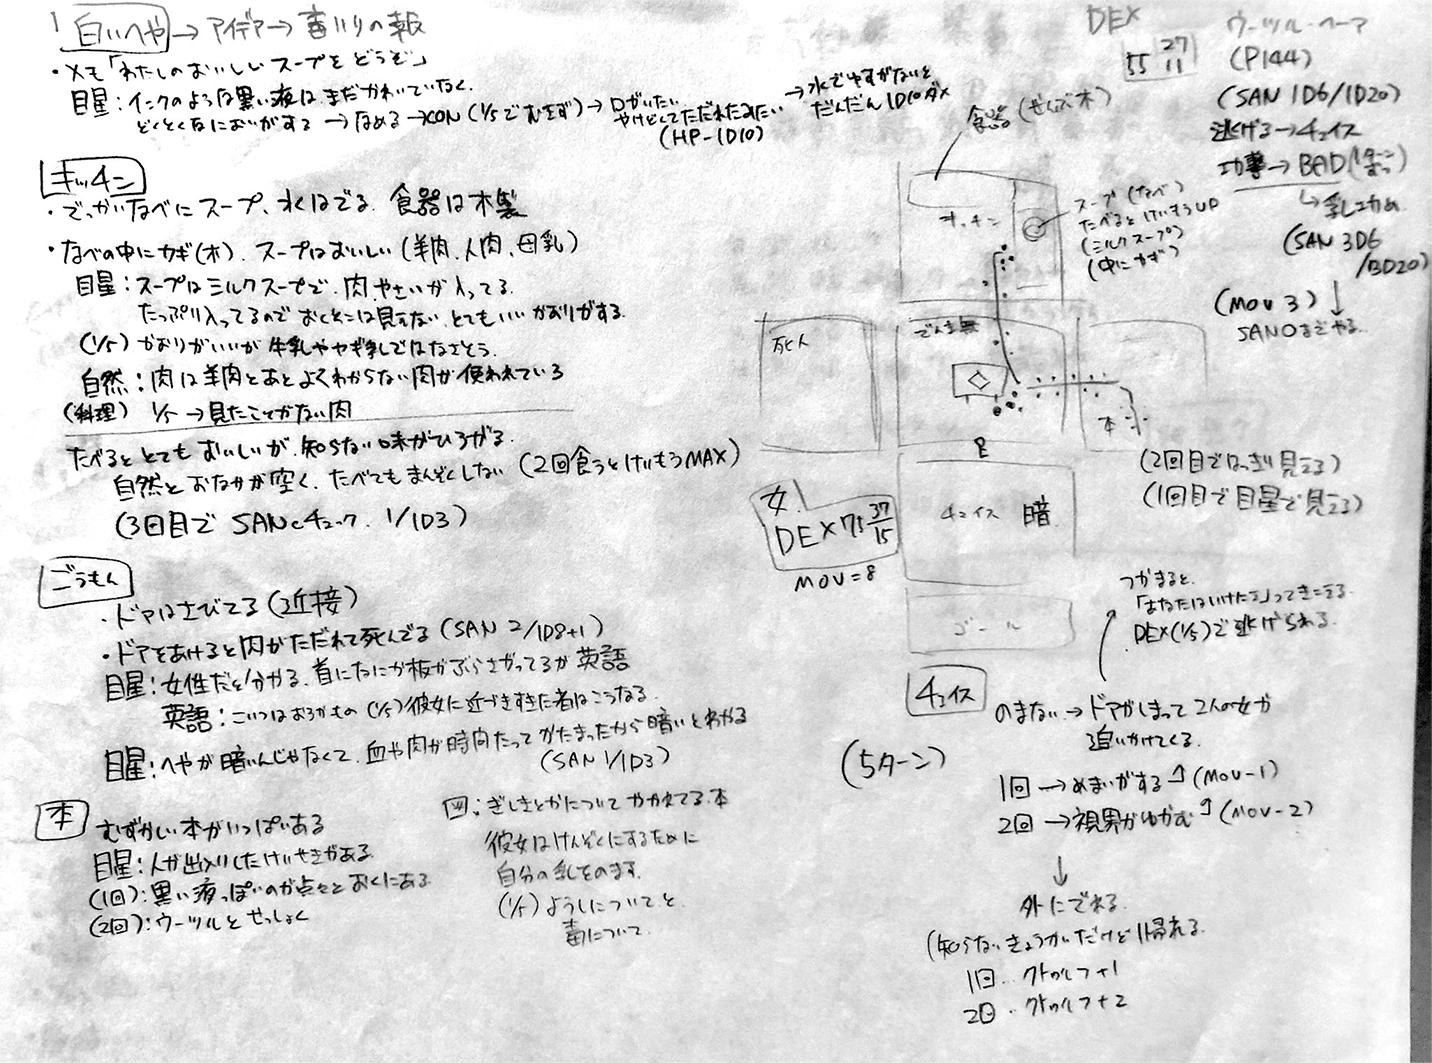 白いへや→アイデア→毒入りの報
・メモ「わたしのおいしいスープをどうぞ」
目星：インクのような黒い液はまだかわいていなく、
どくとくなにおいがする→なめる→CON(1/5でむきず)→口がいたい
やけどしてただれたみたい
(HP-1D10)
→水でゆすがないと
だんだん1D10ダメ
キッチン
・でっかいなべにスープ、水はでる、食器は木製
・なべの中にカギ(木)、スープはおいしい(羊肉、人肉、母乳)
目星：スープはミルクスープで、肉やさいが入ってる。
たっぷり入ってるのでおくそこは見えない、とてもいいかおりがする。
(1/5)かおりがいいが牛乳ややぎ乳ではなさそう。
自然：肉は羊肉とあとよくわからない肉が使われている
(料理) 1/5→見たことがない肉
たべるととてもおいしいが、知らない味がひろがる。
自然とおなかが空く、たべてもまんぞくしない(2回食うとけいもうMAX)
(3回目でSANcチェック、1/1D3)
ごうもん
・ドアはさびてる(近接)
・ドアをあけると肉がただれて死んでる(SAN 2/1D8+1)
目星：女性だと分かる、首になにか板がぶらさがってるが英語
英語：こいつはおろかもの(1/5)彼女に近づきすぎた者はこうなる。
目星：へやが暗いんじゃなくて、血や肉が時間たってかたまったから暗いとわかる
(SAN 1/1D3)
本
むずかしい本がいっぱいある
目星：人が出入りしたけいせきがある
(1回)：黒い液っぽいのが点々とおくにある
(2回)：ウーツルとせっしょく
図：ぎしきとかについてかかれてる本
彼女はけんぞくにするために
自分の乳をのます。
(1/5)ようしについてと
毒について
DEX
55 27
11
ウーツル・ヘーア
(P144)
(SAN 1D6/1D20)
逃げる→チェイス
→BAD
(SAN 3D6
(MOV 3)
SAN0までやる。
食器(ぜんぶ木)
キッチン
スープ(なべ)
たべるとけいもうUP
(ミルクスープ)
(中にカギ)
死人
でんき無
本
(2回目ではっきり見える)
(1回目で目星で見える)
女
DEX 75 37
15
MOV=8
チェイス 暗
ゴール
つかまると、
DEX(1/5)で逃げられる。
チェイス
のまない→ドアがしまって2人の女が
追いかけてくる。
(5ターン)
1回→めまいがする(MOV-1)
2回→視界がゆがむ(MOV-2)
↓
外にでれる。
(知らないきょうかいだけど帰れる。
1回‥クトゥルフ+1
2回‥クトゥルフ+2